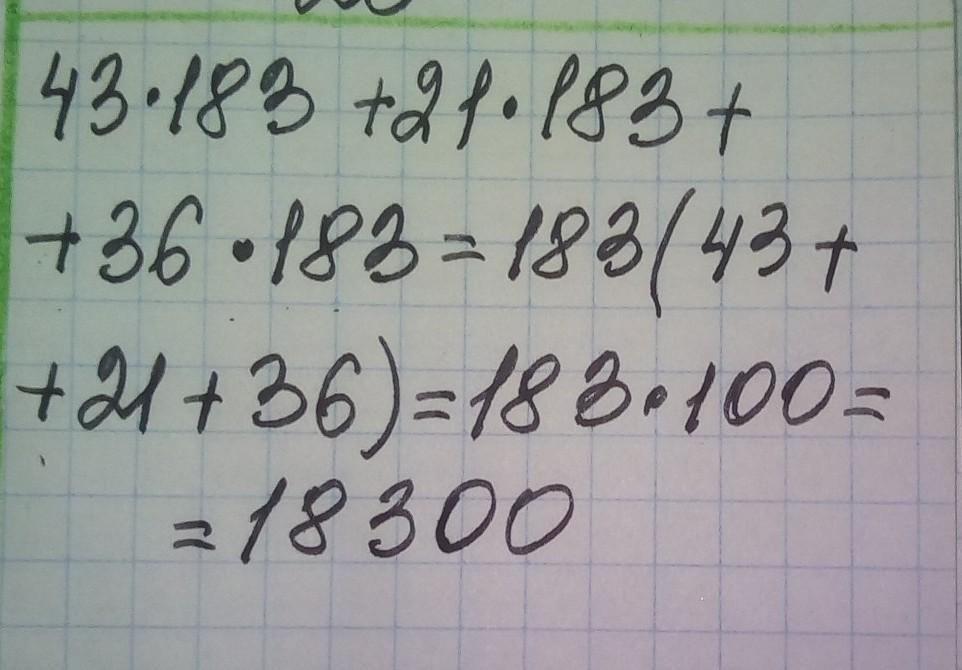 43·183 +21·183+
+36·183=183(43+
+21+36)=183·100=
=18300